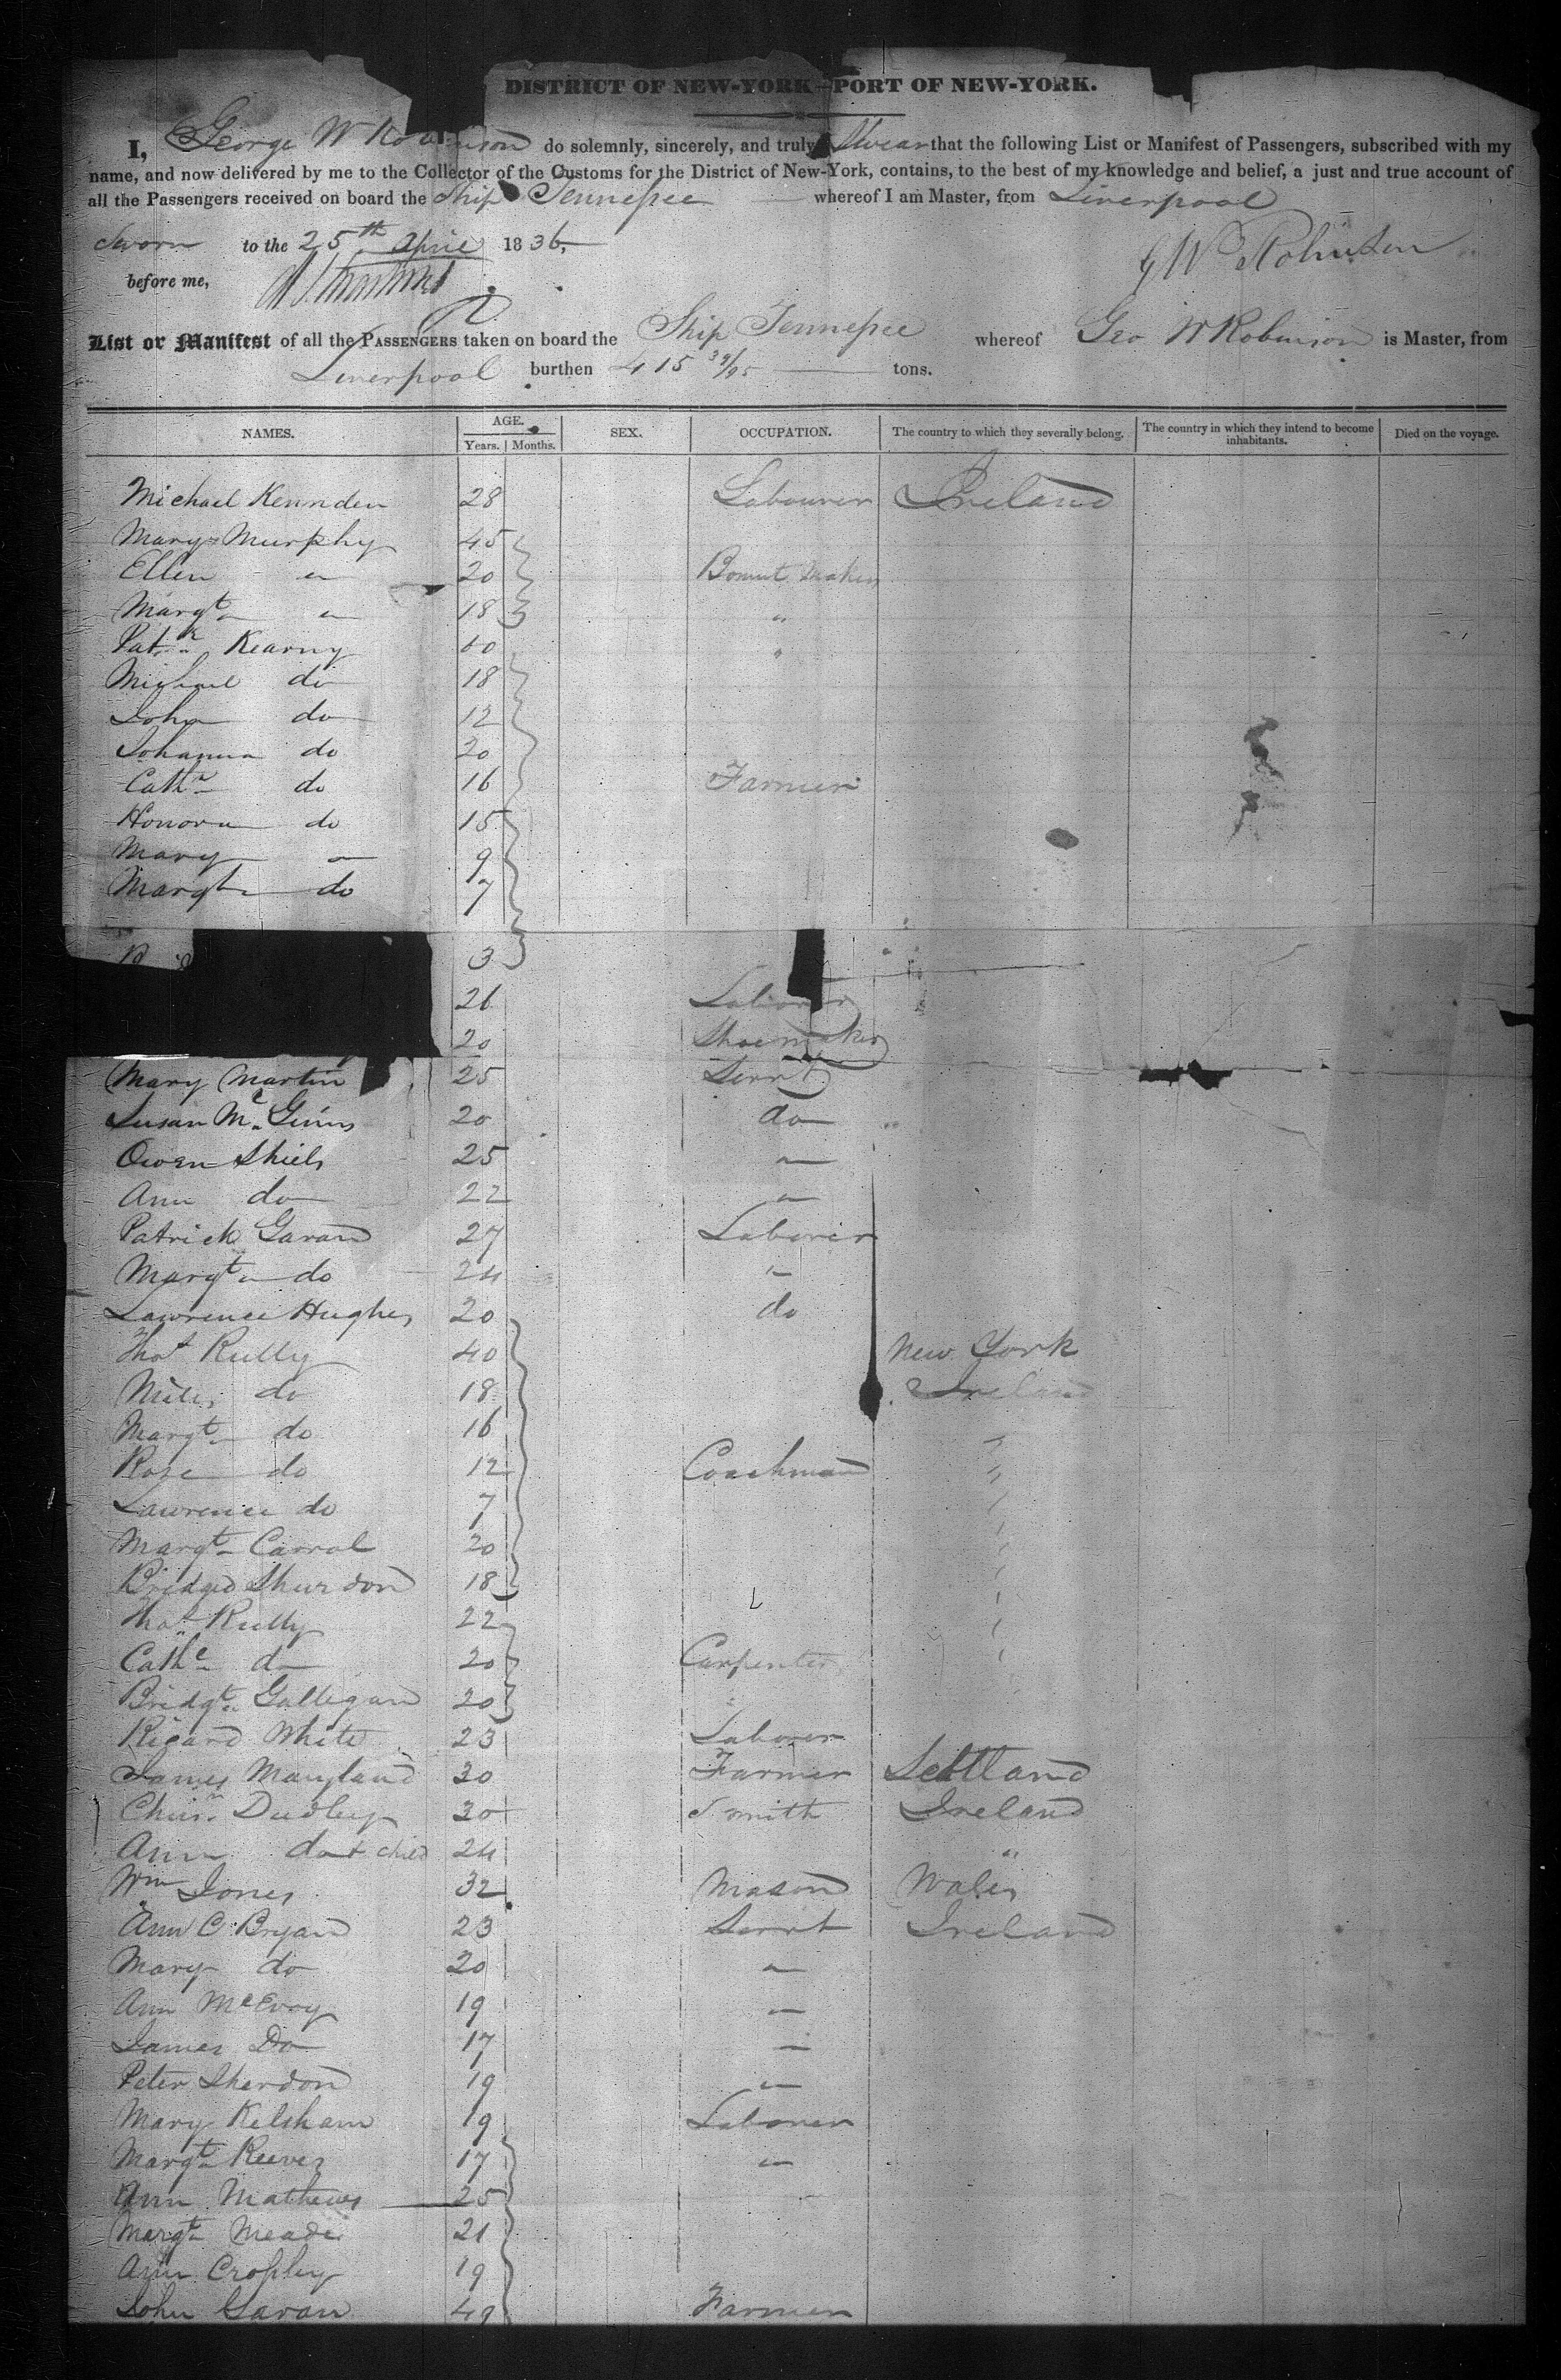 DISTRICT OF NEW-YORK—PORT OF NEW-YORK.
I, George W Robinson do solemnly, sincerely, and truly Swear that the following List or Manifest of Passengers, subscribed with my
name, and now delivered by me to the Collector of the Customs for the District of New-York, contains, to the best of my knowledge and belief, a just and true account of
all the Passengers received on board the Ship Tennessee whereof I am Master, from Liverpool
Sworn to the 25th April 1836,
G W Robinson
before me,
List or Manifest of all the PASSENGERS taken on board the Ship Tennessee whereof Geo W Robinson is Master, from
Liverpool burthen 415 39/95 tons.
NAMES. AGE. Years. Months. SEX. OCCUPATION. The country to which they severally belong. The country in which they intend to become inhabitants. Died on the voyage.
Michael 28 Labourer Ireland
Mary Murphy 45
Ellen " 20 Bonnet Maker
Margt " 18 "
Patk Kearny 40 "
Michael do 18
John do 12
Johanna do 20
Cathe do 16 Farmer
Honora do 15
Mary " 9
Margt do 7
3
26 Laborer
20 Shoemaker
Mary Martin 25 Servt
Susan Mc Ginns 20 do
Owen Shiels 25 "
Ann do 22 "
Patrick Garan 27 Laborer
Margt do 24 "
Lawrence Hughes 20 do
Thos Rielly 40 New York
Miles do 18 Ireland
Margt do 16 "
Rose do 12 Coachman "
Lawrence do 7 "
Margt Carrol 20 "
Bridget Shurdon 18 "
Thos Rielly 22 "
Cathe do 20 Carpenter "
Bridgt Gallegan 20
Ricard White 23 Laborer
James Maryland 30 Farmer Scotland
Dudley 30 Smith Ireland
Ann do & child 24 "
Wm Jones 32 Mason Wales
Ann O Bryan 23 Servt Ireland
Mary do 20 "
Ann McEvoy 19 "
James Do 17 "
Peter Sherdon 19 "
Mary Kelsham 19 Laborer
Margt Reeves 17 "
Ann Mathews 25
Margt Meade 21
Ann Cropley 19
John Garan 49 Farmer